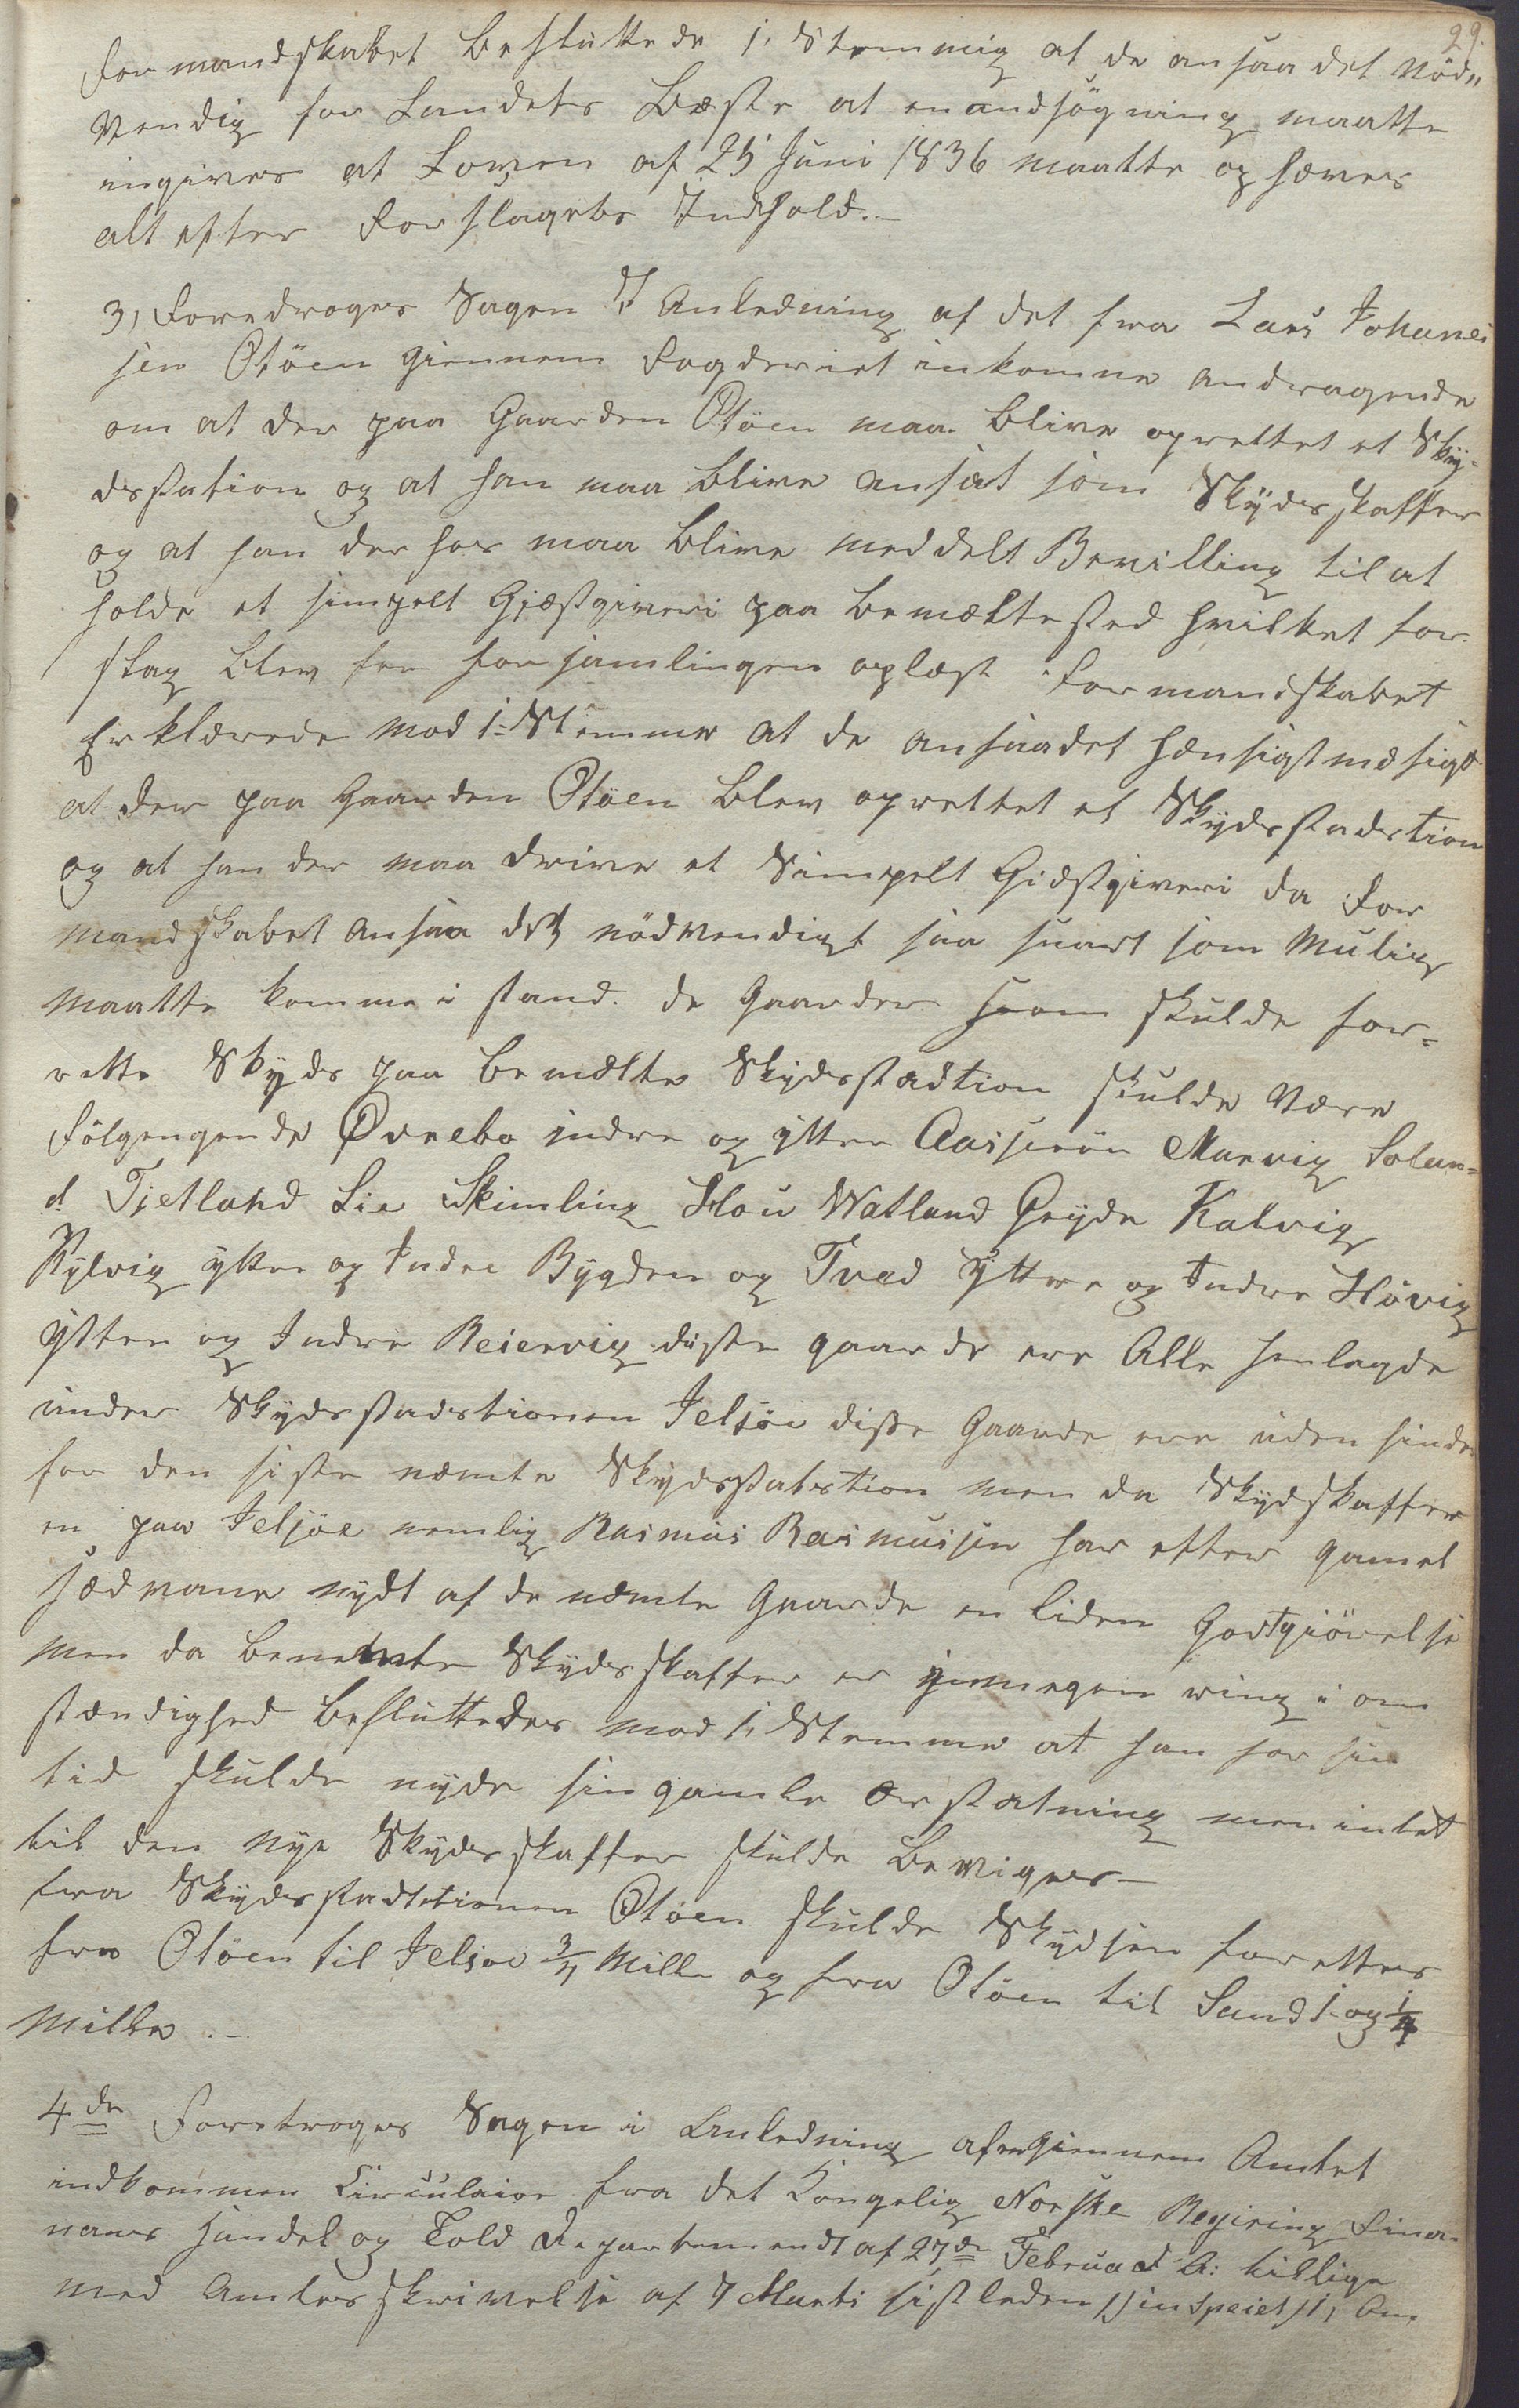 29.
Formandskabet besluttede 1. Stemmig at de ansaa det nöd„
vendig for Landets Bæste at en andsögning maatte
ingives at Loven af 25 Juni 1836 maatte ophæves
alt efter Forslagets Indhold.–
3, Foredroges Sagen I Anledning af det fra Lars Johanes
sen Otöen giennem Fogderiet inkomne andragende
om at der paa Gaarden Otöen maa blive oprettet et Sky-
dsstation og at han maa blive ansat som Skydsskaffer
og at han der hos maa blive meddelt Bevilling til at
holde et simpelt Gjæstgiveri paa bemælte sted hvilket for-
slag blev for forsamlingen oplæst. Formandskabet
Erklærede mod 1. Stemme at de ansaa det hensigtmæsigt
at der paa Gaarden Otöen blev oprettet et Skydsstadstion
og at han der maa drive et Simpelt Gidstgiveri da For
mandskabet ansaa det nödvendigt saa snart som Mulig
maatte komme i stand. de Gaarder som skulde for-
rette Skyds paa bemælte Skydsstadtion skulde være
fölgengende Øvrebø indre og yttre Marvig Solan-
d Tjetland Lie Skimling Hou Watland Gryde Kalvig
Kylvig yttre og Indre Bygden og Tved Yttre og Indre Høvig
Yttre og Indre Reiervig disse gaarde ere Alle henlagde
under Skydsstadstionen Jelsöe disse Gaarde ere uden hinder
for den siste nemte Skydsstatstion men da Skydskaffer
en paa Jelsöe nemlig Rasmus Rasmussen har efter gamel
sædvane nydt af de nemte Gaarde en liden Godtgiörelse
men da benemte Skydsskaffer er i megen ring i om
stændighed besluttedes mod 1. Stemme at han for sin
tid skulde nyde sin gamle Erstatning men intet
til den nye Skydsskaffer skulde bevises –
fra Skydsstadtstionen Otöen skulde Skydsen forettes
fra Otöen til Jelsöe 3/4 Mille og fra Otöen til Sand 1 og 1/4
Mille. –
4de Foretroges Sagen i Anledning af en giennem Amtet
indkommen Circulaire fra det Kongelig Norske Regiring Finan-
nans Handel og Told Departemendt af 27de Februar d. A: tillige
med Amtes skrivelse af 7 Marti sistleden Om